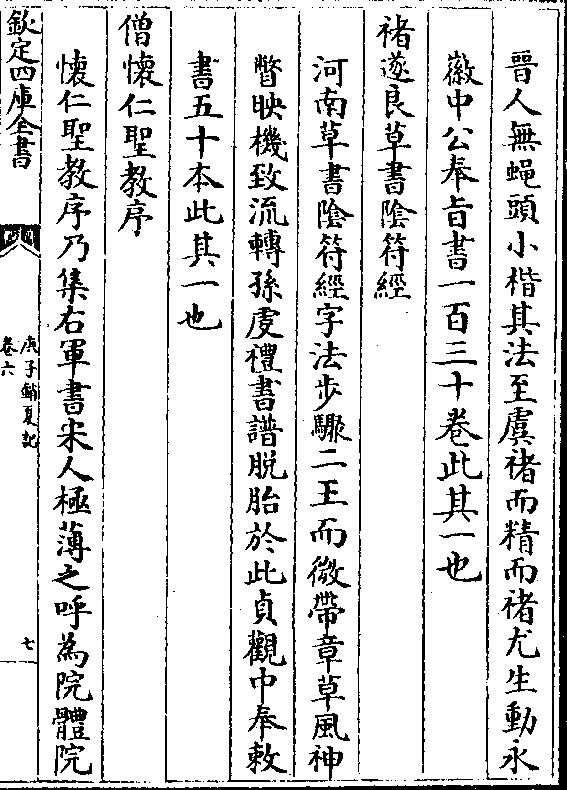 晉人無蠅頭小楷其法至虞褚而精而褚尤生動永
徽中公奉旨書一百三十卷此其一也
褚遂良草書陰符經
河南草書陰符經字法步驟二王而微帶章草風神
瞥映機致流轉孫虔禮書譜脱胎於此貞觀中奉敕
書五十本此其一也
僧懷仁聖教序
懷仁聖教序乃集右軍書宋人極薄之呼為院體院
欽定四庫全書
庚子銷夏記
卷六
七